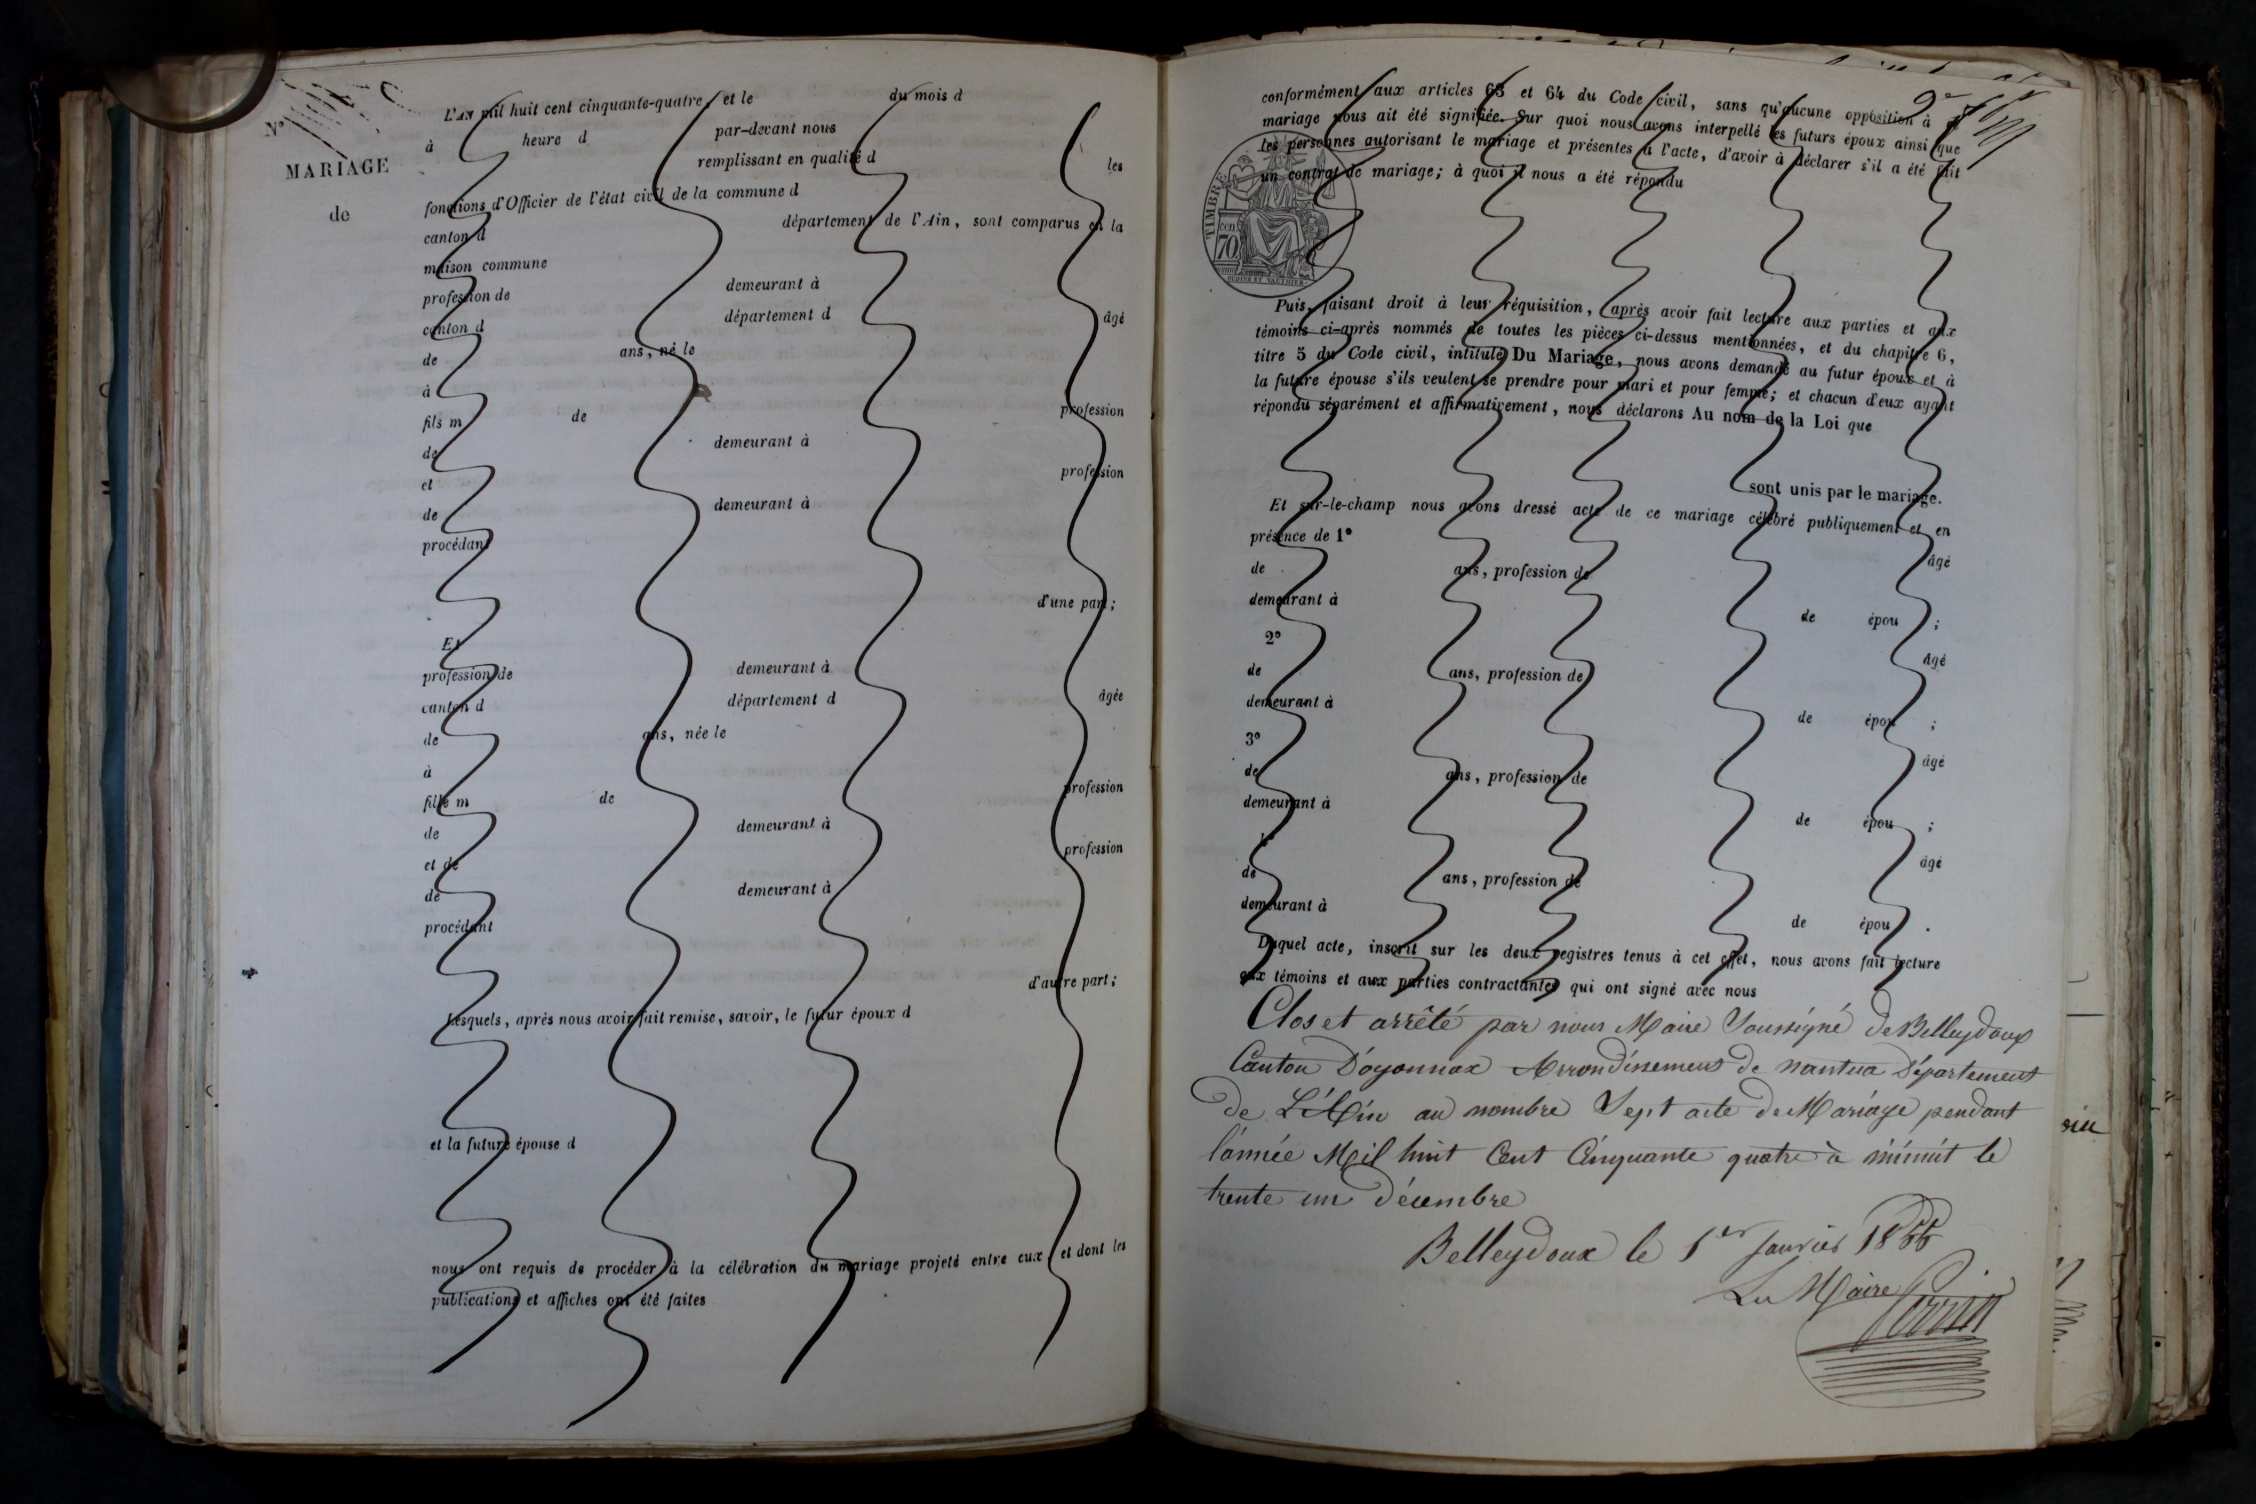 N°
MARIAGE
de
L'AN mil huit cent cinquante-quatre, et le du mois d
à heure d par-devant nous
remplissant en qualité d les
fonctions d'Officier de l'état civil de la commune d
canton d département de l'Ain, sont comparus en la
maison commune
profession de demeurant à
canton d département d âgé
de ans, né le
à
fils m de profession
de demeurant à
et profession
de demeurant à
procédant
d'une part;
Et
profession de demeurant à
canton d département d âgée
de ans, née le
à
fille m de profession
de demeurant à
et de profession
de demeurant à
procédant
d'autre part;
Lesquels, après nous avoir fait remise, savoir, le futur époux d
et la future épouse d
nous ont requis de procéder à la célébration du mariage projeté entre eux, et dont les
publications et affiches ont été faites
conformément aux articles 63 et 64 du Code civil, sans qu'aucune opposition à ce
mariage nous ait été signifiée. Sur quoi nous avons interpellé les futurs époux ainsi que
les personnes autorisant le mariage et présentes à l'acte, d'avoir à déclarer s'il a été fait
un contrat de mariage; à quoi il nous a été répondu
TIMBRE
cen
70
Puis, faisant droit à leur réquisition, après avoir fait lecture aux parties et aux
témoins ci-après nommés de toutes les pièces ci-dessus mentionnées, et du chapitre 6,
titre 5 du Code civil, intitulé Du Mariage, nous avons demandé au futur époux et à
la future épouse s'ils veulent se prendre pour mari et pour femme; et chacun d'eux ayant
répondu séparément et affirmativement, nous déclarons Au nom de la Loi que
sont unis par le mariage.
Et sur-le-champ nous avons dressé acte de ce mariage célébré publiquement et en
présence de 1° âgé
de ans, profession de
demeurant à de épou ;
2° âgé
de ans, profession de
demeurant à de épou ;
3° âgé
de ans, profession de
demeurant à de épou ;
4° âgé
de ans, profession de
demeurant à de épou .
Duquel acte, inscrit sur les deux registres tenus à cet effet, nous avons fait lecture
aux témoins et aux parties contractantes qui ont signé avec nous
Clos et arrêté par nous Maire Soussigné de Belleydoux
Canton D'oyonnax Arrondissement de nantua Département
de L'Ain au nombre Sept acte de Mariage pendant
l'année Mil huit Cent Cinquante quatre à minuit le
trente un décembre
Belleydoux le 1er Janvier 1855
Le Maire
Perrin